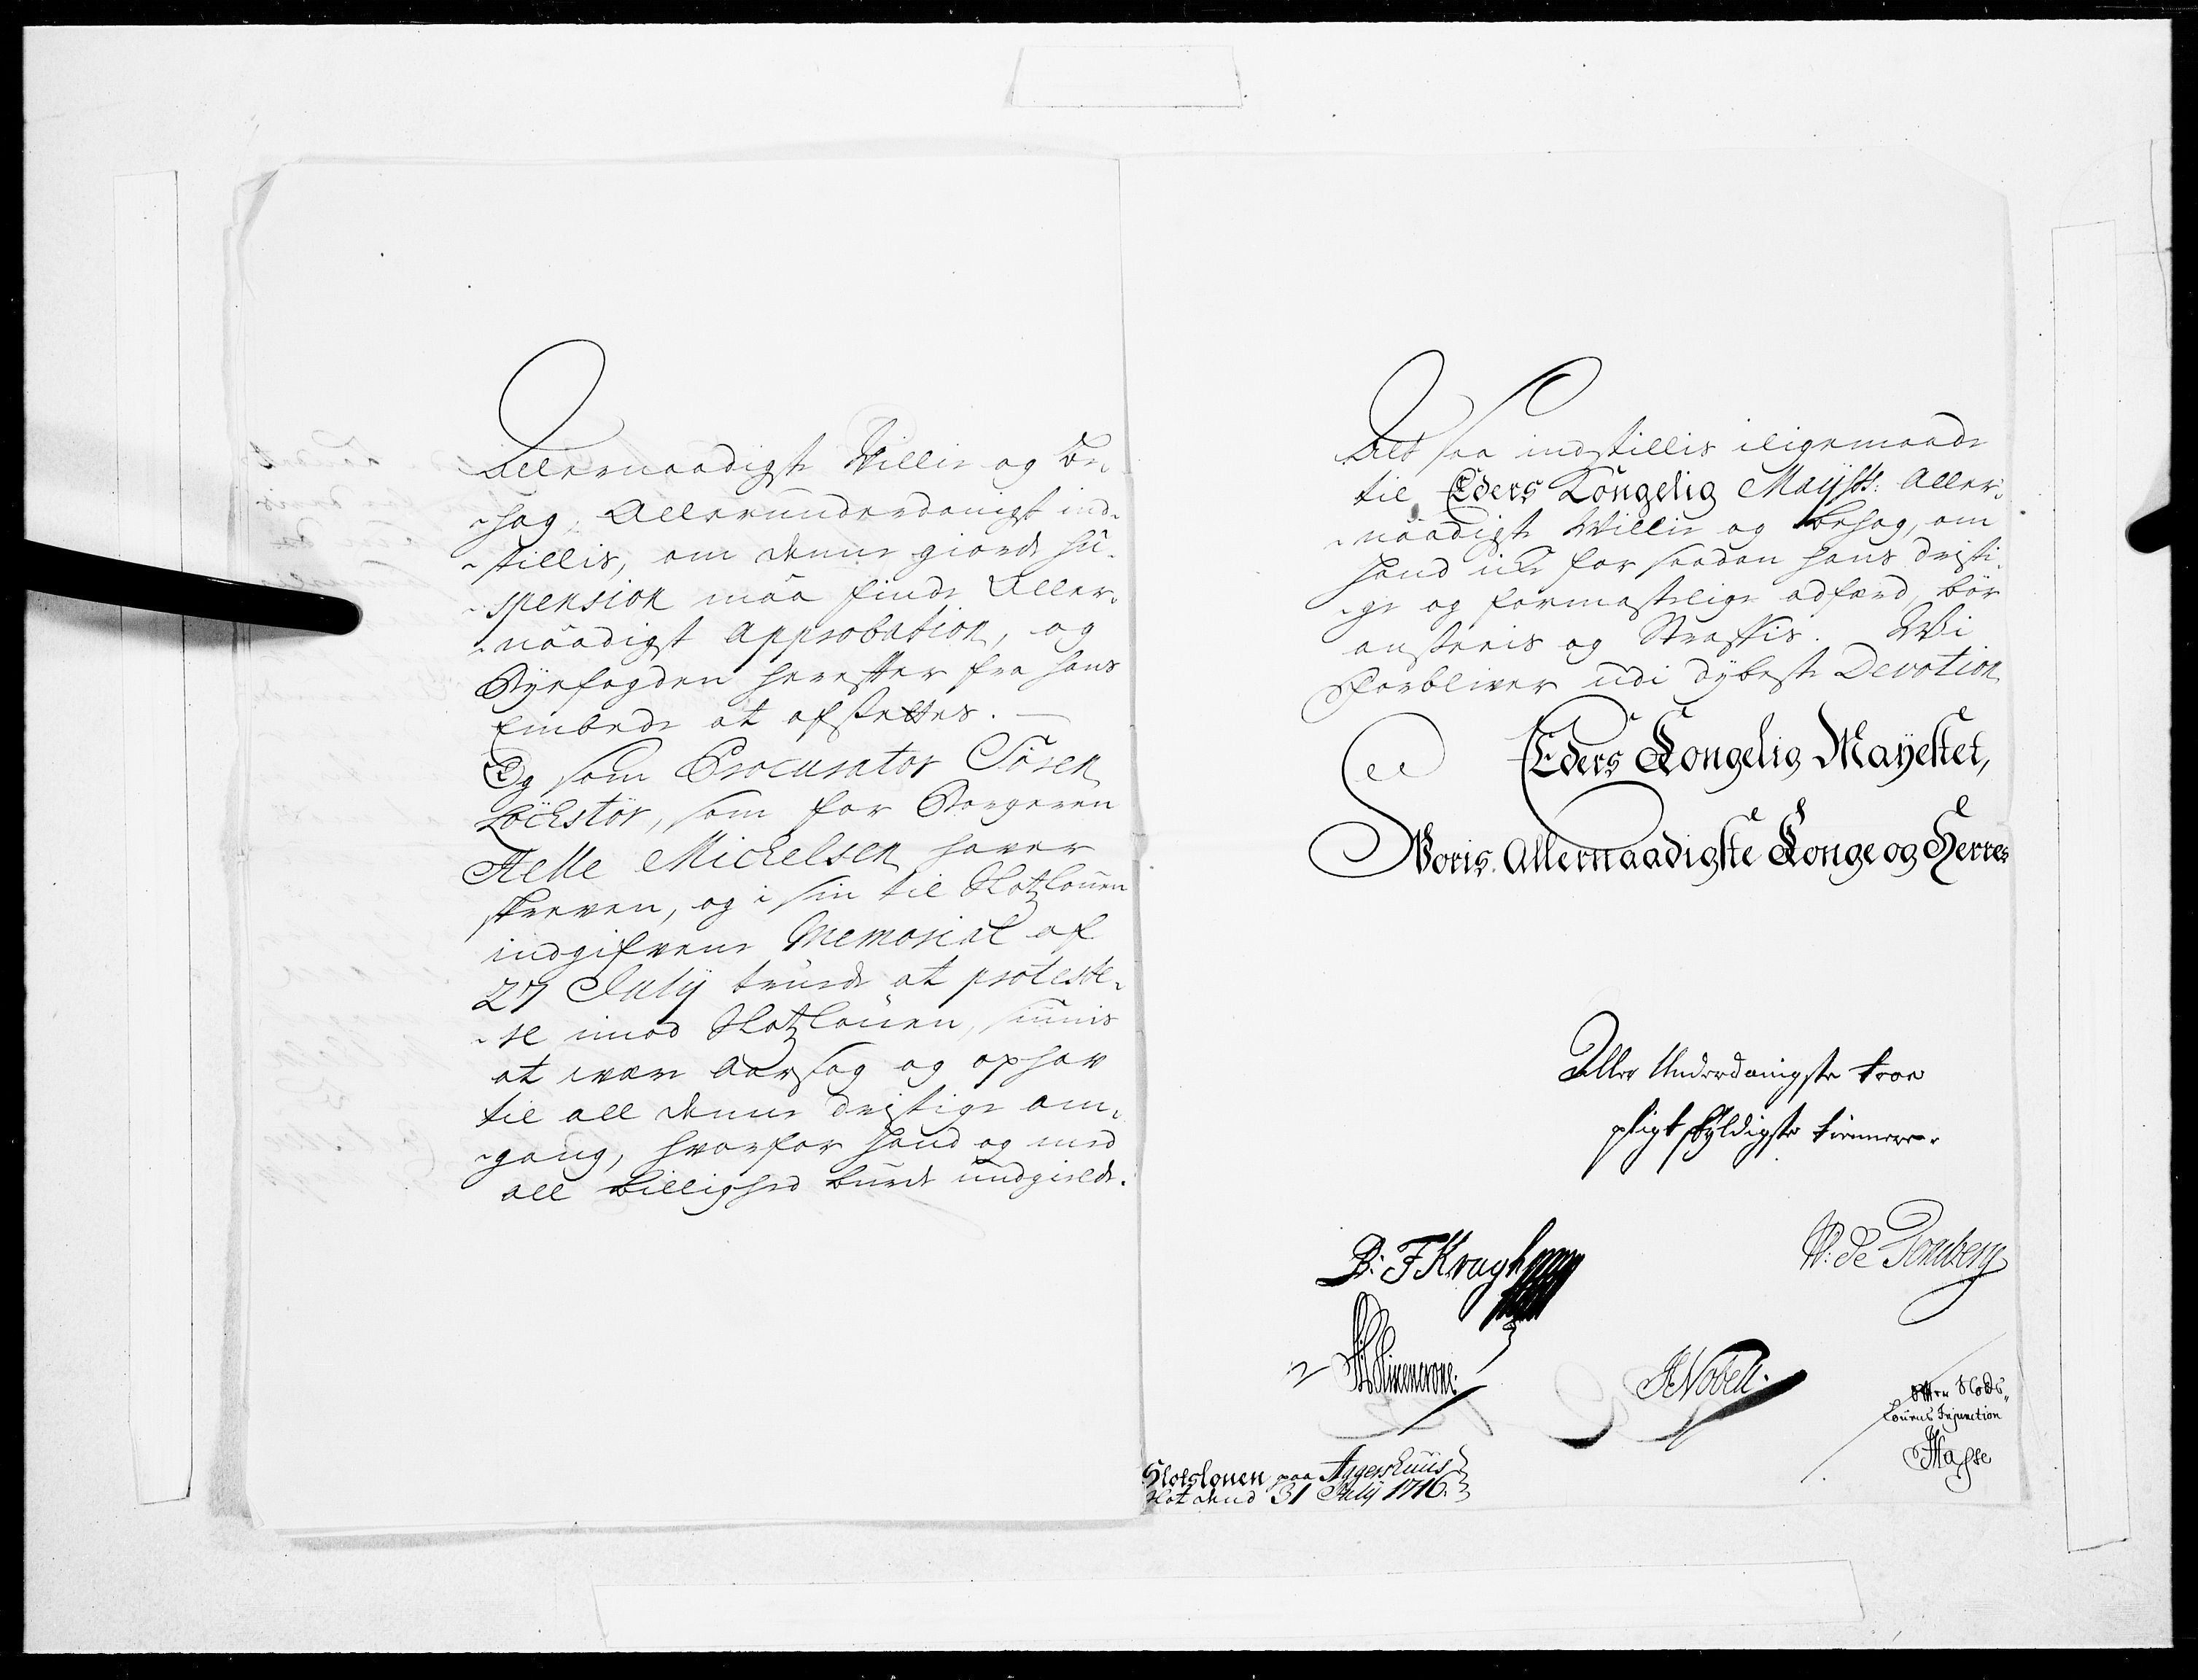 Allernaadigste Villie og be-
-hag, Allerunderdanigst ind-
-stillis, om denne giorde su-
-spension maa finde Aller-
-naadigst Approbation, og
Byefogden herefter fra hans
Embede at afsættes.
Og som Procurator Sören
Löchstör, som for Borgeren
Helle Michelsen haver
skreven, og i sin til Slotzlouen
indgifvene Memorial af
27 July turde at proteste-
-re imod Slotzlouen, siunis
at være Aarsag og ophav
til all denne dristige om-
-gang, hvorfor hand og med
all billighed burde undgielde.
Alt saa indstillis iligemaade
til Eders Kongelig Mayst: Aller-
-naadigste Willie og behag, om
hand icke for saadan hans dristi-
-ge og formastelige adfærd, bör
ansees og Straffis. Wi
Forbliver udi dybeste Devotion
Eders Kongelig Mayestet,
Woris Allernaadigste Konge og Herres
Aller Underdanigste troe
pligt skyldigste tiennere
B: F Kragh
W: de Tonsberg
J Nobell.
Efter Slots-
Louens Injunction
Slotslouen paa Aggershuus
Slot dend 31 July 1716.